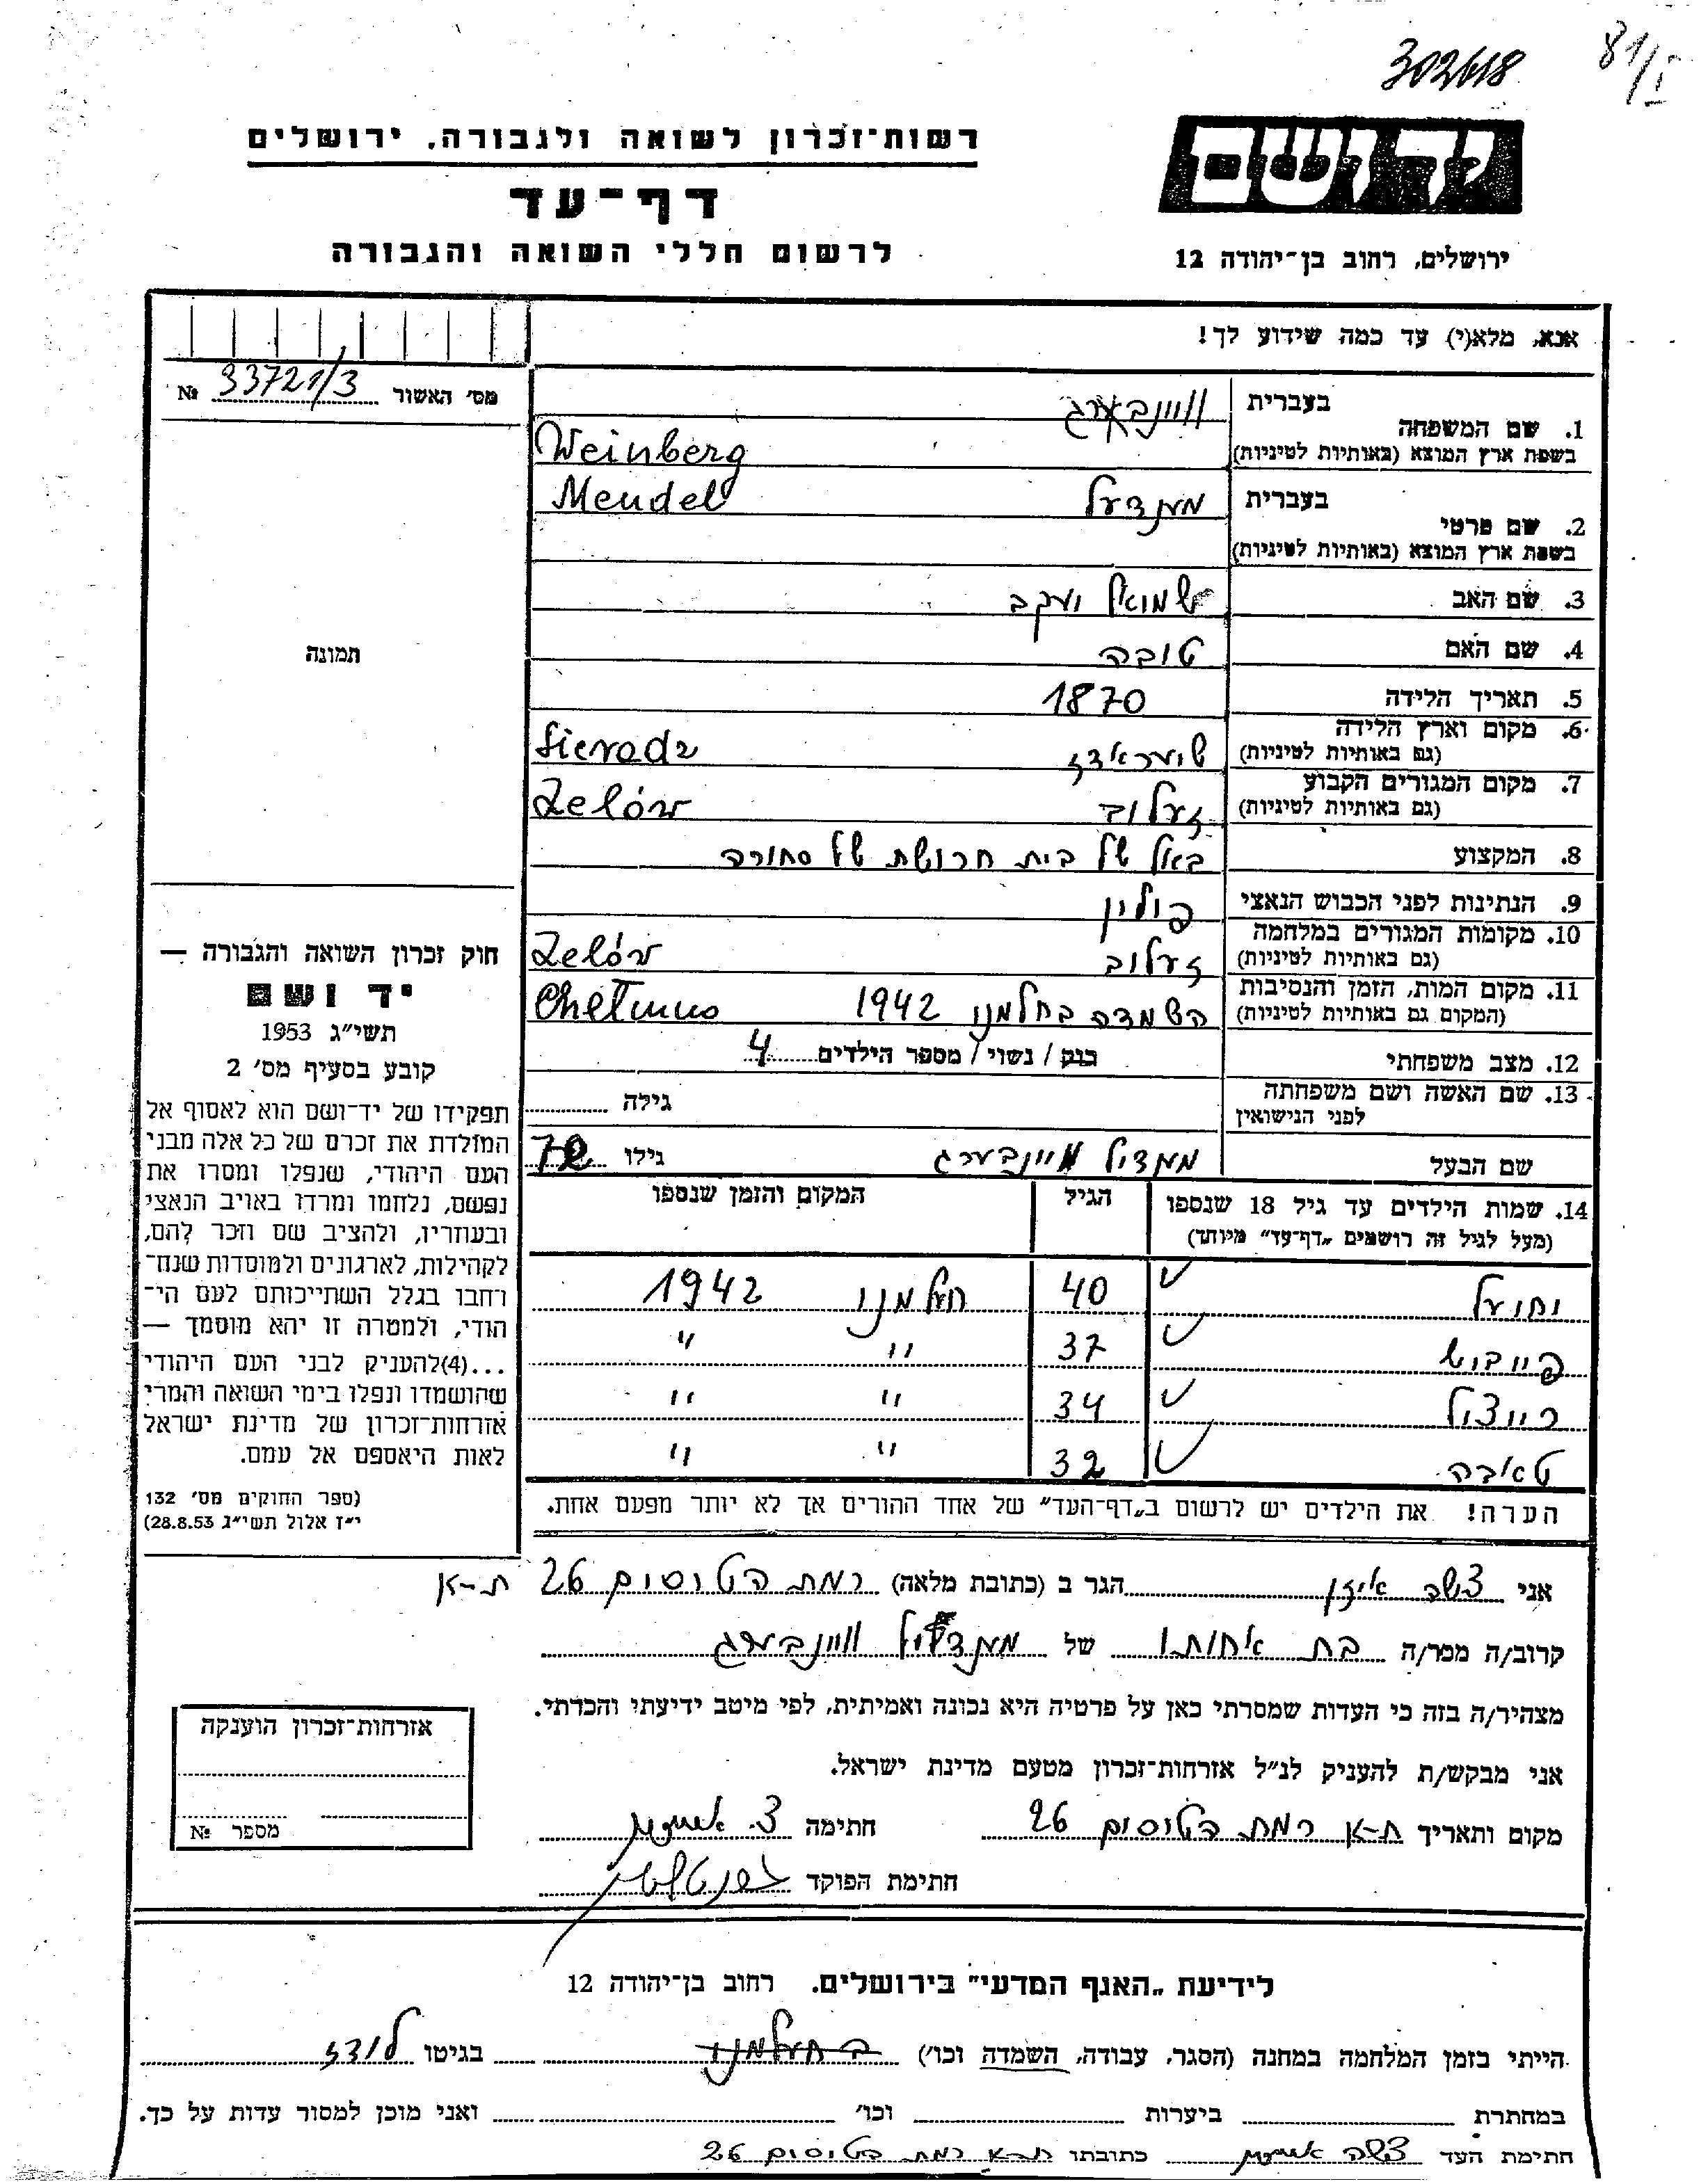 302618
81/I
רשות־זכרון לשואה ולגבורה, ירושלים
ידושם
דף־עד
לרשום חללי השואה והגבורה
ירושלים, רחוב בן־יהודה 12
אנא, מלא(י) עד כמה שידוע לך!
מס׳ האשור 33721/3 №
1. שם המשפחה
בעברית וויינבארג
בשפת ארץ המוצא (באותיות לטיניות) Weinberg
2. שם פרטי
בעברית מענדעל Mendel
בשפת ארץ המוצא (באותיות לטיניות)
3. שם האב שמואל יעקב
4. שם האם טובה
תמונה
5. תאריך הלידה 1870
6. מקום וארץ הלידה
(גם באותיות לטיניות) שיעראדז Sieradz
7. מקום המגורים הקבוע
(גם באותיות לטיניות) זעלוב Zelów
8. המקצוע באל של בית חרושת של סחורה
9. הנתינות לפני הכבוש הנאצי פולין
10. מקומות המגורים במלחמה
(גם באותיות לטיניות) זעלוב Zelów
11. מקום המות, הזמן והנסיבות
(המקום גם באותיות לטיניות) השמדה בחלמנו 1942 Chełmno
12. מצב משפחתי רוק / נשוי / מספר הילדים 4
13. שם האשה ושם משפחתה
לפני הנישואין גילה
שם הבעל מענדיל וויינבערג גילו 72
14. שמות הילדים עד גיל 18 שנספו הגיל המקום והזמן שנספו
(מעל לגיל זה רושמים „דף־עד״ מיוחד)
40 חעלמנו 1942
פייבוש 37 " "
רייצל 34 " "
טאובה 32 " "
הערה! את הילדים יש לרשום ב„דף־העד״ של אחד ההורים אך לא יותר מפעם אחת.
חוק זכרון השואה והגבורה —
יד ושם
תשי״ג 1953
קובע בסעיף מס׳ 2
תפקידו של יד־ושם הוא לאסוף אל
המולדת את זכרם של כל אלה מבני
העם היהודי, שנפלו ומסרו את
נפשם, נלחמו ומרדו באויב הנאצי
ובעוזריו, ולהציב שם וזכר להם,
לקהילות, לארגונים ולמוסדות שנח־
רחבו בגלל השתייכותם לעם הי־
הודי, ולמטרה זו יהא מוסמך —
...(4)להעניק לבני העם היהודי
שהושמדו ונפלו בימי השואה והמרי
אזרחות־זכרון של מדינת ישראל
לאות היאספם אל עמם.
(ספר החוקים מס׳ 132
י״ז אלול תשי״ג 28.8.53)
אני צשה אייזן הגר ב (כתובת מלאה) רמת הטייסים 26 ת-א
קרוב/ה מכר/ה בת אחותו של מענדעל וויינבערג
מצהיר/ה בזה כי העדות שמסרתי כאן על פרטיה היא נכונה ואמיתית, לפי מיטב ידיעתי והכרתי.
אני מבקש/ת להעניק לנ״ל אזרחות־זכרון מטעם מדינת ישראל.
מקום ותאריך ת-א רמת הטייסים 26 חתימה
חתימת הפוקד
אזרחות־זכרון הוענקה
מספר №
לידיעת „האגף המדעי״ בירושלים. רחוב בן־יהודה 12
הייתי בזמן המלחמה במחנה (הסגר, עבודה, השמדה וכו׳) בחעלמנו בגיטו לודז
במחתרת ביערות וכו׳ ואני מוכן למסור עדות על כך.
חתימת העד צשה כתובתו ת-א רמת הטייסים 26